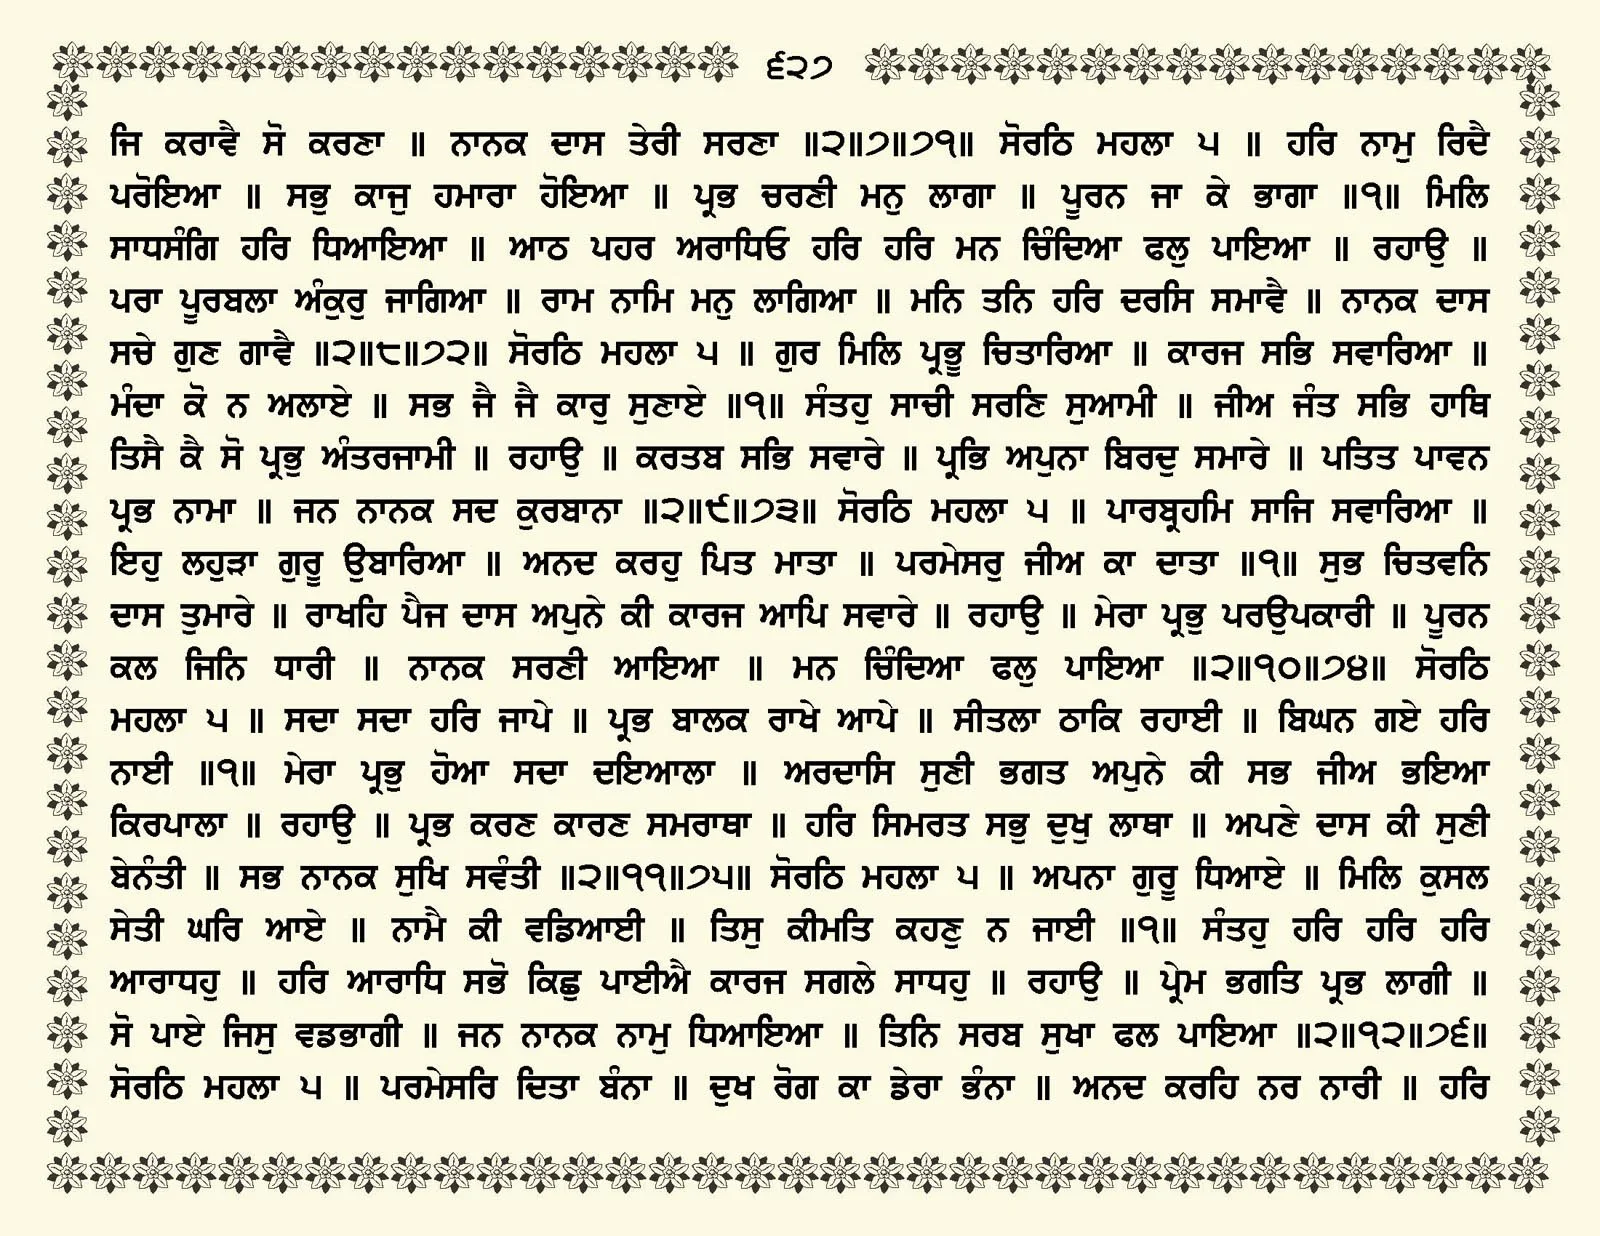 ੬੨੭
ਜਿ ਕਰਾਵੈ ਸੋ ਕਰਣਾ ॥ ਨਾਨਕ ਦਾਸ ਤੇਰੀ ਸਰਣਾ ॥੨॥੭॥੭੧॥ ਸੋਰਠਿ ਮਹਲਾ ੫ ॥ ਹਰਿ ਨਾਮੁ ਰਿਦੈ
ਪਰੋਇਆ ॥ ਸਭੁ ਕਾਜੁ ਹਮਾਰਾ ਹੋਇਆ ॥ ਪ੍ਰਭ ਚਰਣੀ ਮਨੁ ਲਾਗਾ ॥ ਪੂਰਨ ਜਾ ਕੇ ਭਾਗਾ ॥੧॥ ਮਿਲਿ
ਸਾਧਸੰਗਿ ਹਰਿ ਧਿਆਇਆ ॥ ਆਠ ਪਹਰ ਅਰਾਧਿਓ ਹਰਿ ਹਰਿ ਮਨ ਚਿੰਦਿਆ ਫਲੁ ਪਾਇਆ ॥ ਰਹਾਉ ॥
ਪਰਾ ਪੂਰਬਲਾ ਅੰਕੁਰੁ ਜਾਗਿਆ ॥ ਰਾਮ ਨਾਮਿ ਮਨੁ ਲਾਗਿਆ ॥ ਮਨਿ ਤਨਿ ਹਰਿ ਦਰਸਿ ਸਮਾਵੈ ॥ ਨਾਨਕ ਦਾਸ
ਸਚੇ ਗੁਣ ਗਾਵੈ ॥੨॥੮॥੭੨॥ ਸੋਰਠਿ ਮਹਲਾ ੫ ॥ ਗੁਰ ਮਿਲਿ ਪ੍ਰਭੂ ਚਿਤਾਰਿਆ ॥ ਕਾਰਜ ਸਭਿ ਸਵਾਰਿਆ ॥
ਮੰਦਾ ਕੋ ਨ ਅਲਾਏ ॥ ਸਭ ਜੈ ਜੈ ਕਾਰੁ ਸੁਣਾਏ ॥੧॥ ਸੰਤਹੁ ਸਾਚੀ ਸਰਣਿ ਸੁਆਮੀ ॥ ਜੀਅ ਜੰਤ ਸਭਿ ਹਾਥਿ
ਤਿਸੈ ਕੈ ਸੋ ਪ੍ਰਭੁ ਅੰਤਰਜਾਮੀ ॥ ਰਹਾਉ ॥ ਕਰਤਬ ਸਭਿ ਸਵਾਰੇ ॥ ਪ੍ਰਭਿ ਅਪੁਨਾ ਬਿਰਦੁ ਸਮਾਰੇ ॥ ਪਤਿਤ ਪਾਵਨ
ਪ੍ਰਭ ਨਾਮਾ ॥ ਜਨ ਨਾਨਕ ਸਦ ਕੁਰਬਾਨਾ ॥੨॥੯॥੭੩॥ ਸੋਰਠਿ ਮਹਲਾ ੫ ॥ ਪਾਰਬ੍ਰਹਮਿ ਸਾਜਿ ਸਵਾਰਿਆ ॥
ਇਹੁ ਲਹੁੜਾ ਗੁਰੂ ਉਬਾਰਿਆ ॥ ਅਨਦ ਕਰਹੁ ਪਿਤ ਮਾਤਾ ॥ ਪਰਮੇਸਰੁ ਜੀਅ ਕਾ ਦਾਤਾ ॥੧॥ ਸੁਭ ਚਿਤਵਨਿ
ਦਾਸ ਤੁਮਾਰੇ ॥ ਰਾਖਹਿ ਪੈਜ ਦਾਸ ਅਪੁਨੇ ਕੀ ਕਾਰਜ ਆਪਿ ਸਵਾਰੇ ॥ ਰਹਾਉ ॥ ਮੇਰਾ ਪ੍ਰਭੁ ਪਰਉਪਕਾਰੀ ॥ ਪੂਰਨ
ਕਲ ਜਿਨਿ ਧਾਰੀ ॥ ਨਾਨਕ ਸਰਣੀ ਆਇਆ ॥ ਮਨ ਚਿੰਦਿਆ ਫਲੁ ਪਾਇਆ ॥੨॥੧੦॥੭੪॥ ਸੋਰਠਿ
ਮਹਲਾ ੫ ॥ ਸਦਾ ਸਦਾ ਹਰਿ ਜਾਪੇ ॥ ਪ੍ਰਭ ਬਾਲਕ ਰਾਖੇ ਆਪੇ ॥ ਸੀਤਲਾ ਠਾਕਿ ਰਹਾਈ ॥ ਬਿਘਨ ਗਏ ਹਰਿ
ਨਾਈ ॥੧॥ ਮੇਰਾ ਪ੍ਰਭੁ ਹੋਆ ਸਦਾ ਦਇਆਲਾ ॥ ਅਰਦਾਸਿ ਸੁਣੀ ਭਗਤ ਅਪੁਨੇ ਕੀ ਸਭ ਜੀਅ ਭਇਆ
ਕਿਰਪਾਲਾ ॥ ਰਹਾਉ ॥ ਪ੍ਰਭ ਕਰਣ ਕਾਰਣ ਸਮਰਾਥਾ ॥ ਹਰਿ ਸਿਮਰਤ ਸਭੁ ਦੁਖੁ ਲਾਥਾ ॥ ਅਪਣੇ ਦਾਸ ਕੀ ਸੁਣੀ
ਬੇਨੰਤੀ ॥ ਸਭ ਨਾਨਕ ਸੁਖਿ ਸਵੰਤੀ ॥੨॥੧੧॥੭੫॥ ਸੋਰਠਿ ਮਹਲਾ ੫ ॥ ਅਪਨਾ ਗੁਰੂ ਧਿਆਏ ॥ ਮਿਲਿ ਕੁਸਲ
ਸੇਤੀ ਘਰਿ ਆਏ ॥ ਨਾਮੈ ਕੀ ਵਡਿਆਈ ॥ ਤਿਸੁ ਕੀਮਤਿ ਕਹਣੁ ਨ ਜਾਈ ॥੧॥ ਸੰਤਹੁ ਹਰਿ ਹਰਿ ਹਰਿ
ਆਰਾਧਹੁ ॥ ਹਰਿ ਆਰਾਧਿ ਸਭੋ ਕਿਛੁ ਪਾਈਐ ਕਾਰਜ ਸਗਲੇ ਸਾਧਹੁ ॥ ਰਹਾਉ ॥ ਪ੍ਰੇਮ ਭਗਤਿ ਪ੍ਰਭ ਲਾਗੀ ॥
ਸੋ ਪਾਏ ਜਿਸੁ ਵਡਭਾਗੀ ॥ ਜਨ ਨਾਨਕ ਨਾਮੁ ਧਿਆਇਆ ॥ ਤਿਨਿ ਸਰਬ ਸੁਖਾ ਫਲ ਪਾਇਆ ॥੨॥੧੨॥੭੬॥
ਸੋਰਠਿ ਮਹਲਾ ੫ ॥ ਪਰਮੇਸਰਿ ਦਿਤਾ ਬੰਨਾ ॥ ਦੁਖ ਰੋਗ ਕਾ ਡੇਰਾ ਭੰਨਾ ॥ ਅਨਦ ਕਰਹਿ ਨਰ ਨਾਰੀ ॥ ਹਰਿ